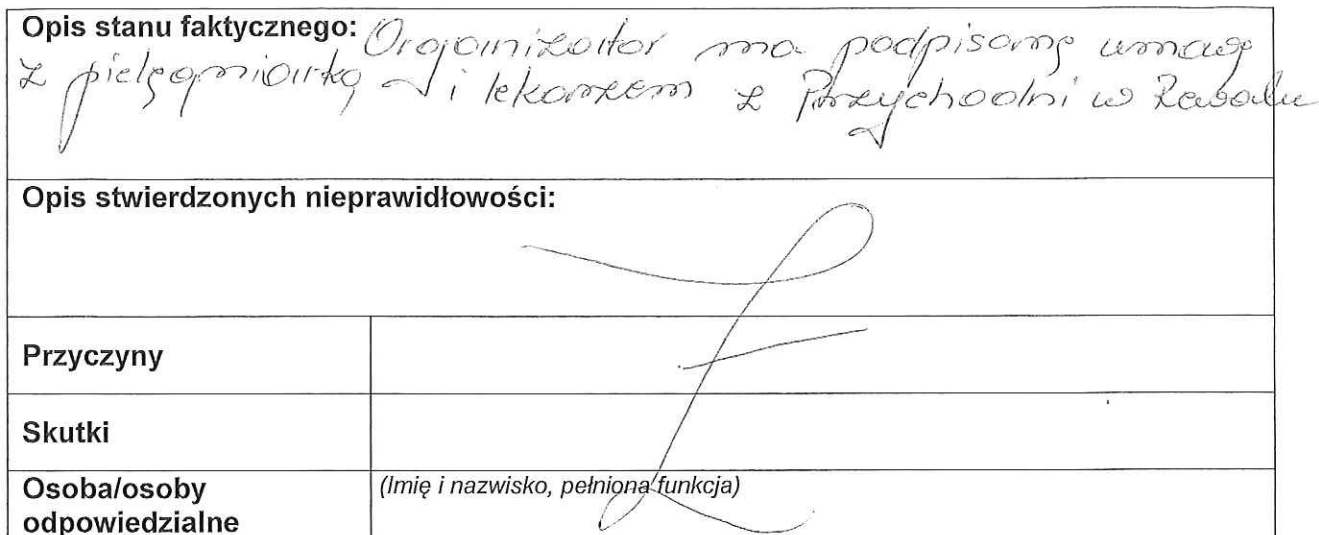 Opis stanu faktycznego: Organizator ma podpisaną umowę
z pielęgniarką i lekarzem z Przychodni w
Opis stwierdzonych nieprawidłowości:
Przyczyny
Skutki
Osoba/osoby
odpowiedzialne
(Imię i nazwisko, pełniona funkcja)